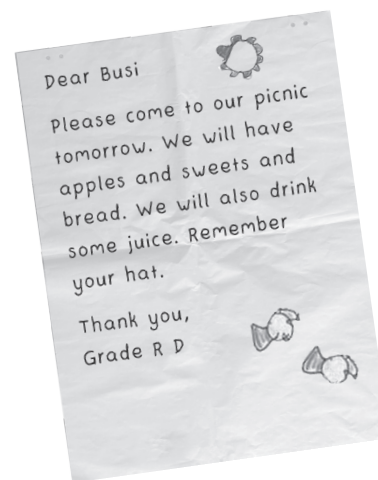 Dear Busi
Please come to our picnic
tomorrow. We will have
apples and sweets and
bread. We will also drink
some juice. Remember
your hat.
Thank you,
Grade R D